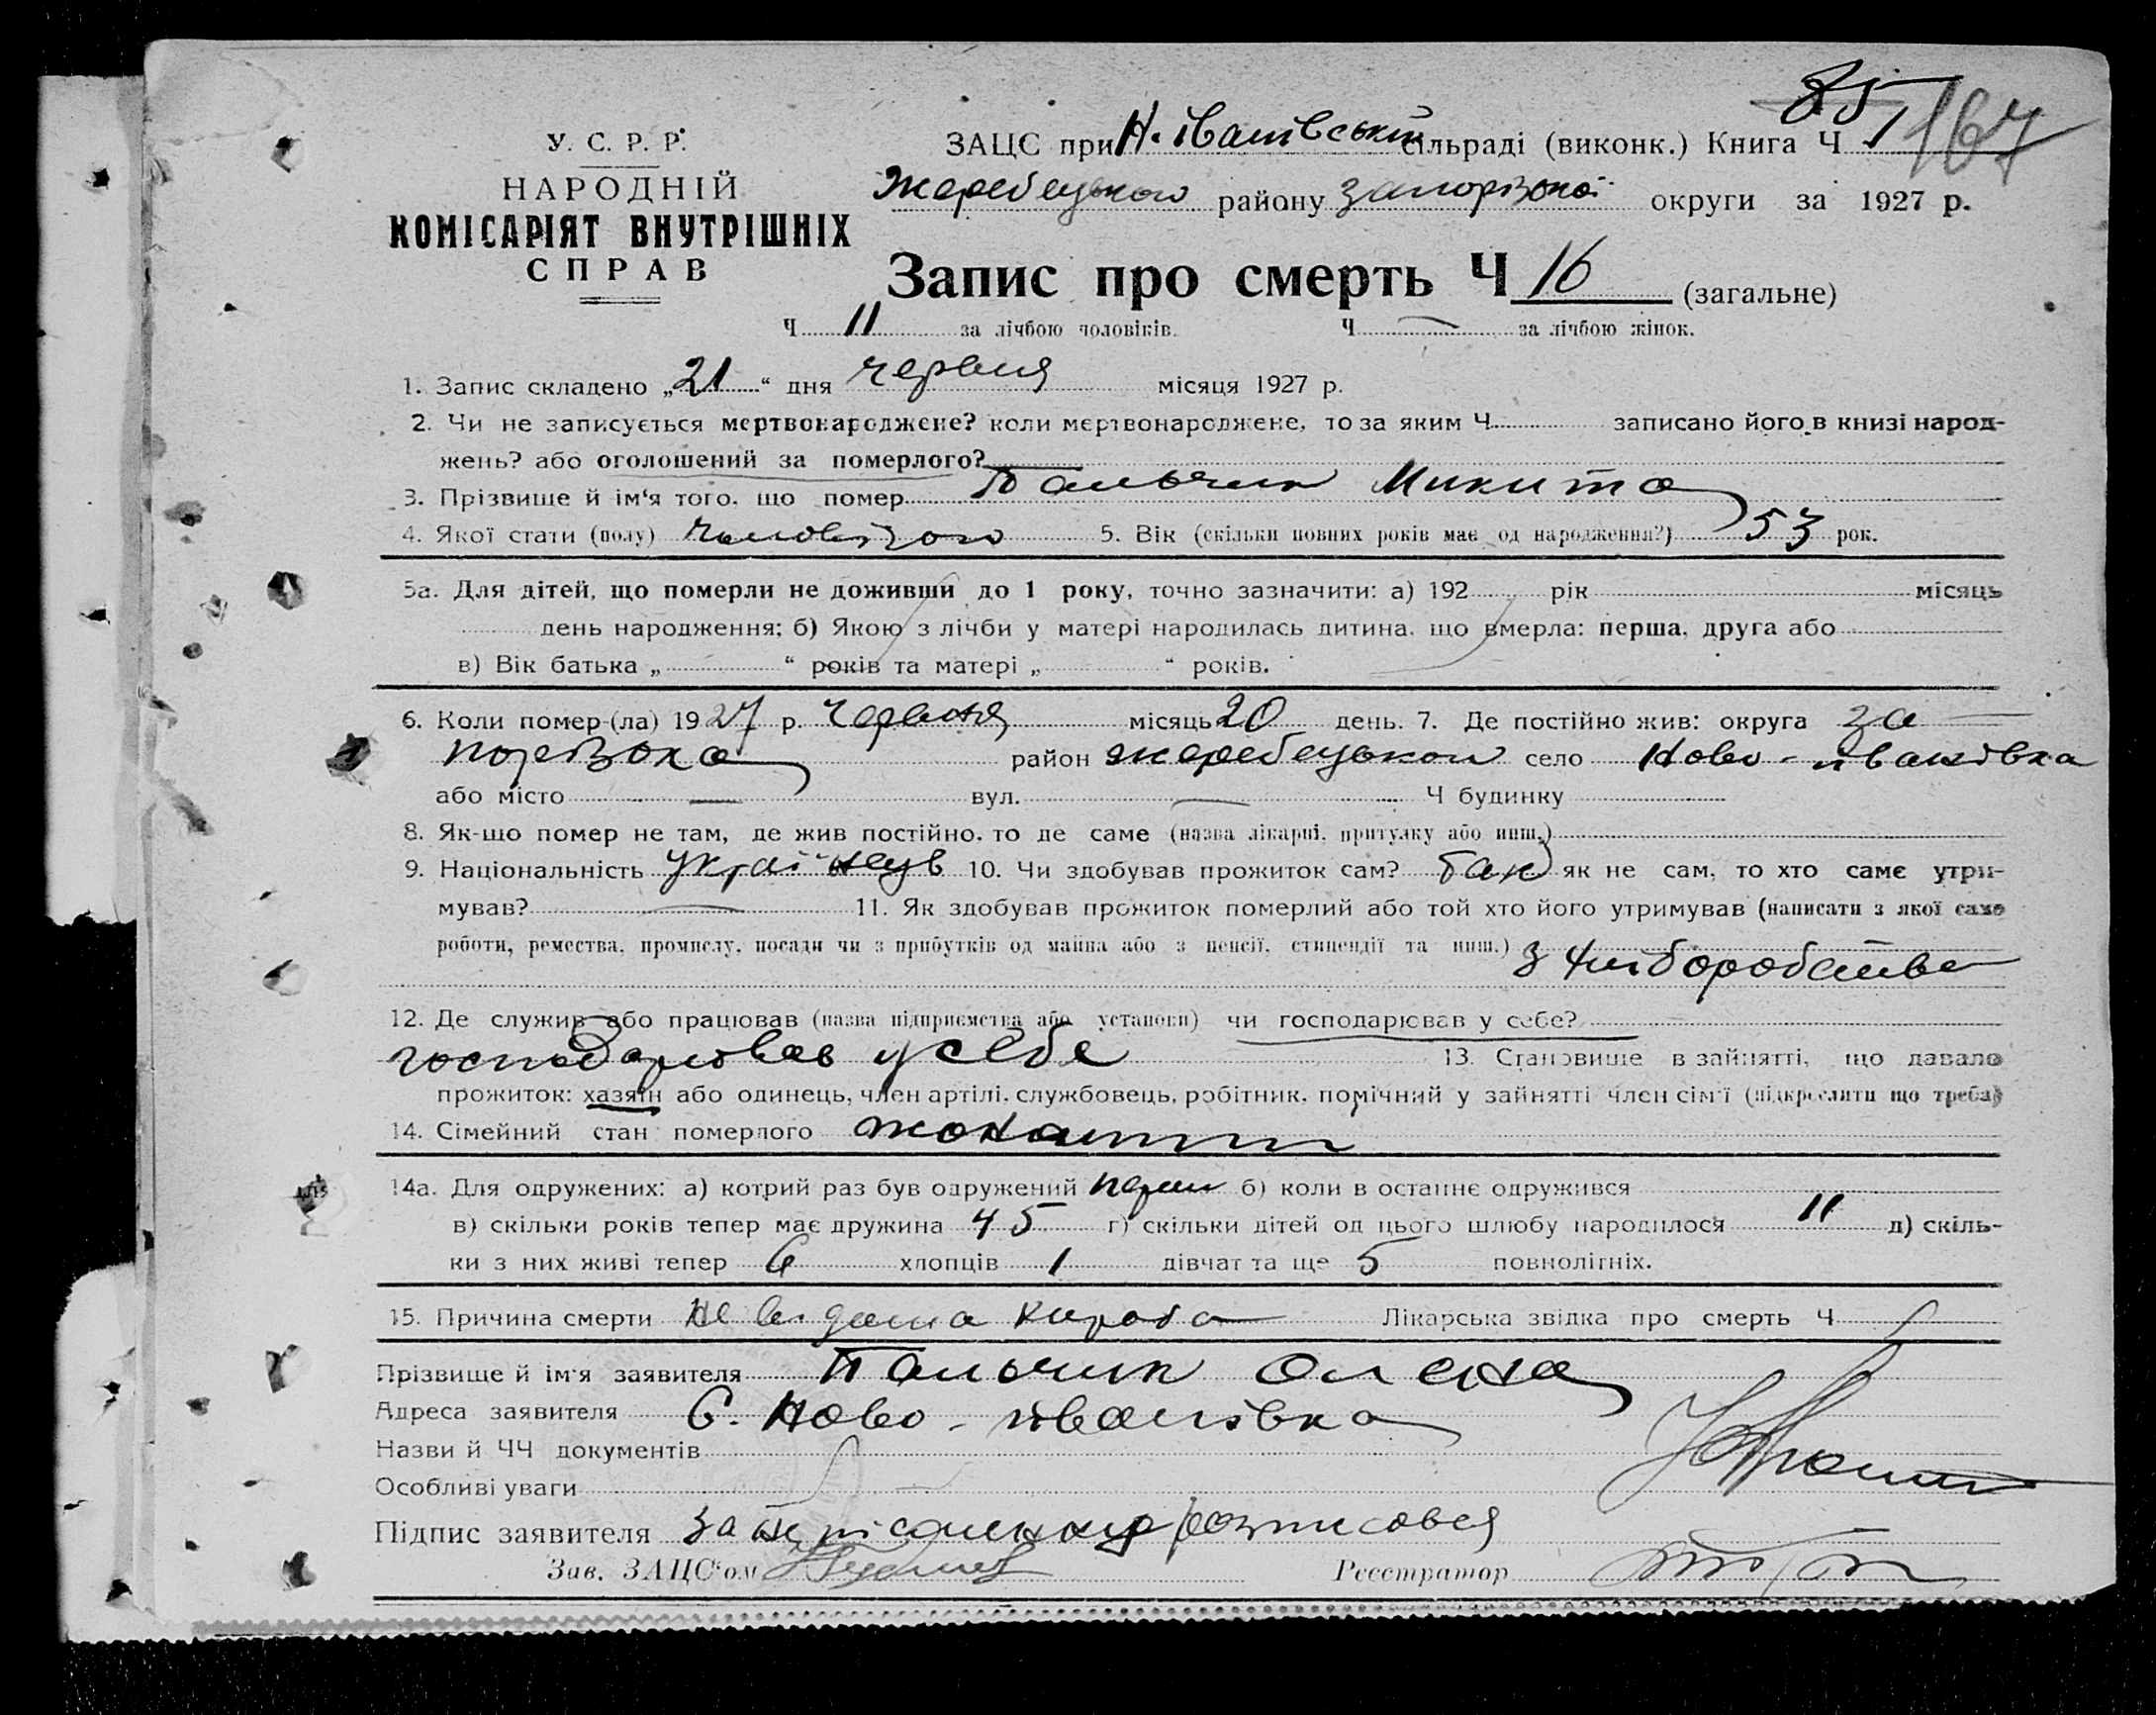 85
167
У. С. Р. Р.
НАРОДНІЙ
КОМІСАРІЯТ ВНУТРІШНІХ
СПРАВ
ЗАЦС при Н. Іванівській сільраді (виконк.) Книга Ч
Жеребецького району Запорізької округи за 1927 р.
Запис про смерть Ч 16 (загальне)
Ч 11 за лічбою чоловіків. Ч — за лічбою жінок.
1. Запис складено „21“ дня червня місяця 1927 р.
2. Чи не записується мертвонароджене? коли мертвонароджене, то за яким Ч записано його в книзі народ-
жень? або оголошений за померлого?
3. Прізвише й ім'я того, що помер Пальчик Микита
4. Якої стати (полу) чоловічого 5. Вік (скільки повних років має од народження?) 53 рок.
5а. Для дітей, що померли не доживши до 1 року, точно зазначити: а) 192 рік місяць
день народження; б) Якою з лічби у матері народилась дитина, що вмерла: перша, друга або
в) Вік батька „ “ років та матері „ “ років.
6. Коли помер-(ла) 1927 р. червня місяць 20 день. 7. Де постійно жив: округа За-
порізька район Жеребецькой село Ново-Іванівка
або місто — вул. — Ч будинку
8. Як-що помер не там, де жив постійно, то де саме (назва лікарні, притулку або инш.)
9. Національність українець 10. Чи здобував прожиток сам? так як не сам, то хто саме утри-
мував? — 11. Як здобував прожиток померлий або той хто його утримував (написати з якої саме
роботи, ремества, промислу, посади чи з прибутків од майна або з пенсії, стипендії та инш.) з хліборобства
12. Де служив або працював (назва підприємства або установи) чи господарював у себе?
господарював у себе 13. Становише в зайнятті, що давало
прожиток: хазяїн або одинець, член артілі, службовець, робітник, помічний у зайнятті член сім'ї (підкреслити що треба)
14. Сімейний стан померлого жонатий
14а. Для одружених: а) котрий раз був одружений перш б) коли в останнє одружився
в) скільки років тепер має дружина 45 г) скільки дітей од цього шлюбу народилося 11 д) скіль-
ки з них живі тепер 6 хлопців 1 дівчат та ще 5 повнолітніх.
15. Причина смерти Лікарська звідка про смерть Ч
Прізвише й ім'я заявителя Пальчик Олена
Адреса заявителя С. Ново-Іванівка
Назви й ЧЧ документів
Особливі уваги
Підпис заявителя за розписовся
Зав. ЗАЦС‘ом Реєстратор